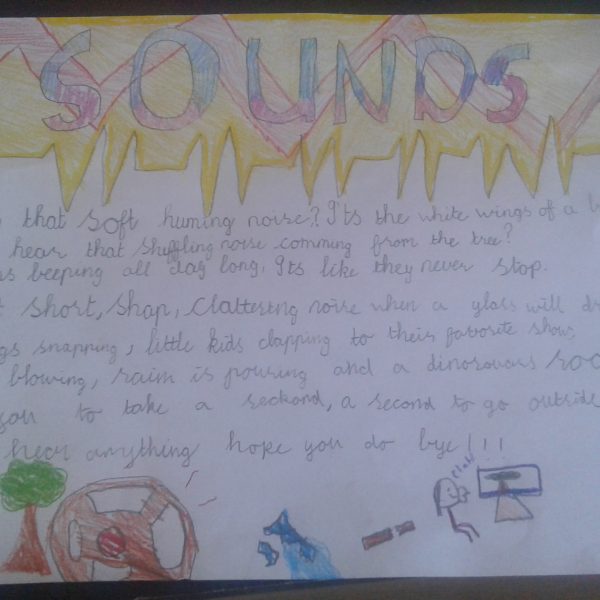 SOUNDS
that soft huming noise? Its the white wings of a
hear that shuffling noise comming from the tree?
beeping all day long. Its like they never stop.
short, shap, clattering noise when a glass will
snapping, little kids clapping to their favorite show,
blowing, raim is pouring and a dinosorous
you to take a seckond, a second to go outside
hear anything hope you do bye!!!!
Clap!